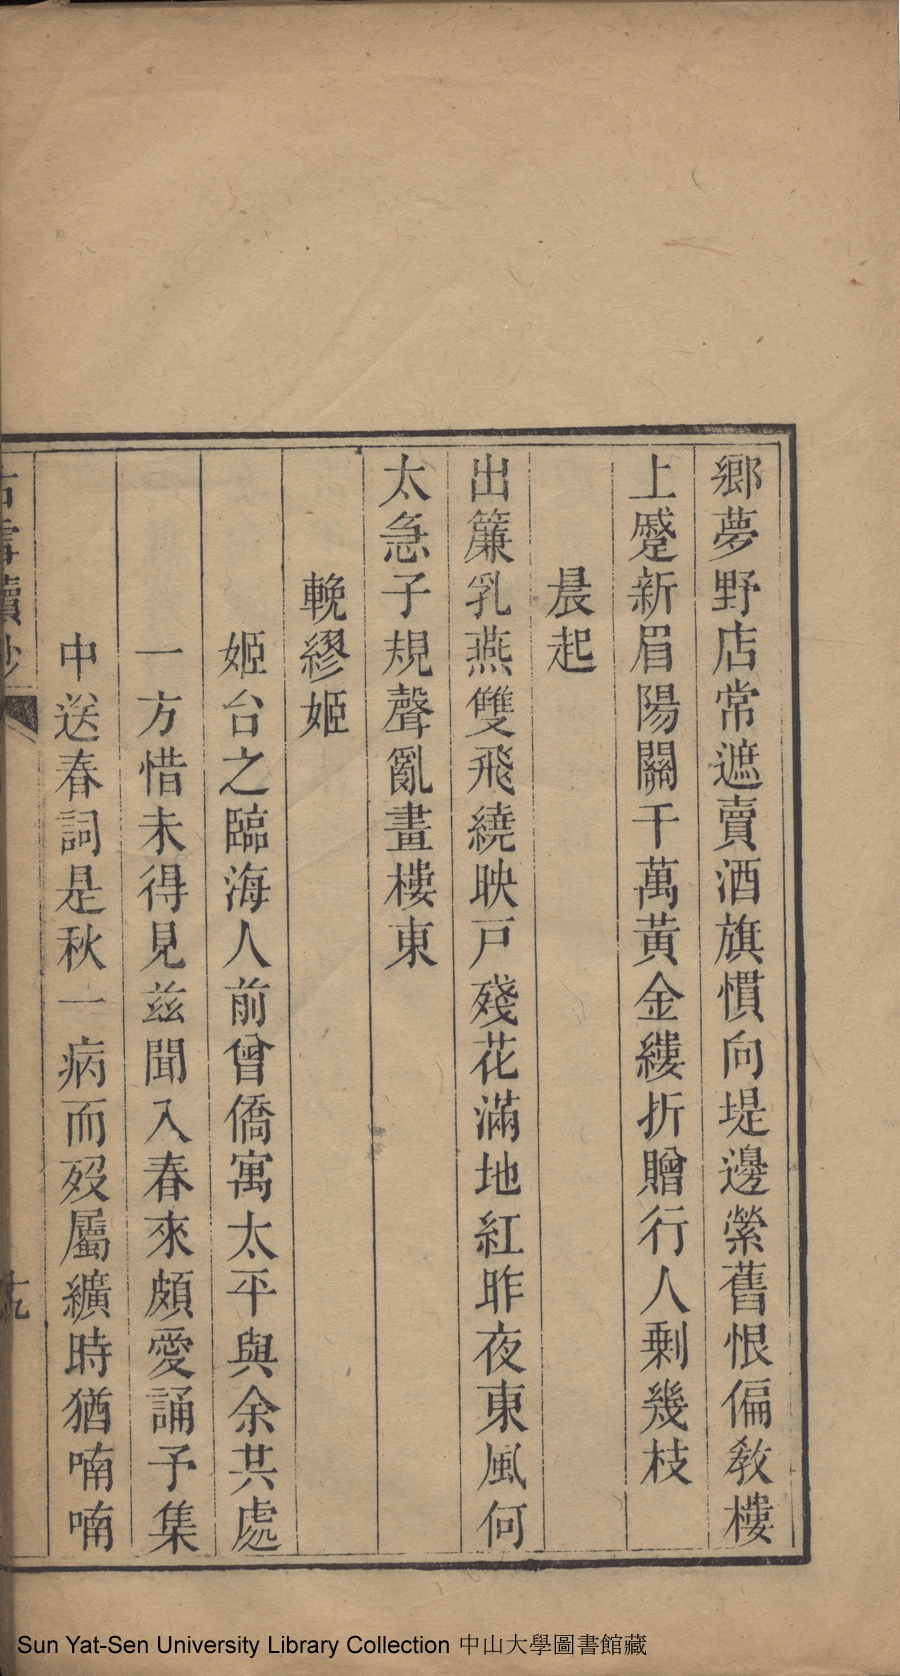 鄉夢野店常遮賣酒旗慣向堤邊縈舊恨偏教樓
上蹙新眉陽關千萬黃金縷折贈行人剩幾枝
晨起
出簾乳燕雙飛繞映戸殘花滿地紅昨夜東風何
太急子規聲亂畫樓東
輓繆姬
姬台之臨海人前曾僑寓太平與余共處
一方惜未得見兹聞入春來頗愛誦予集
中送春詞是秋一病而歿屬纊時猶喃喃
古雪續鈔
Sun Yat-Sen University Library Collection 中山大學圖書館藏